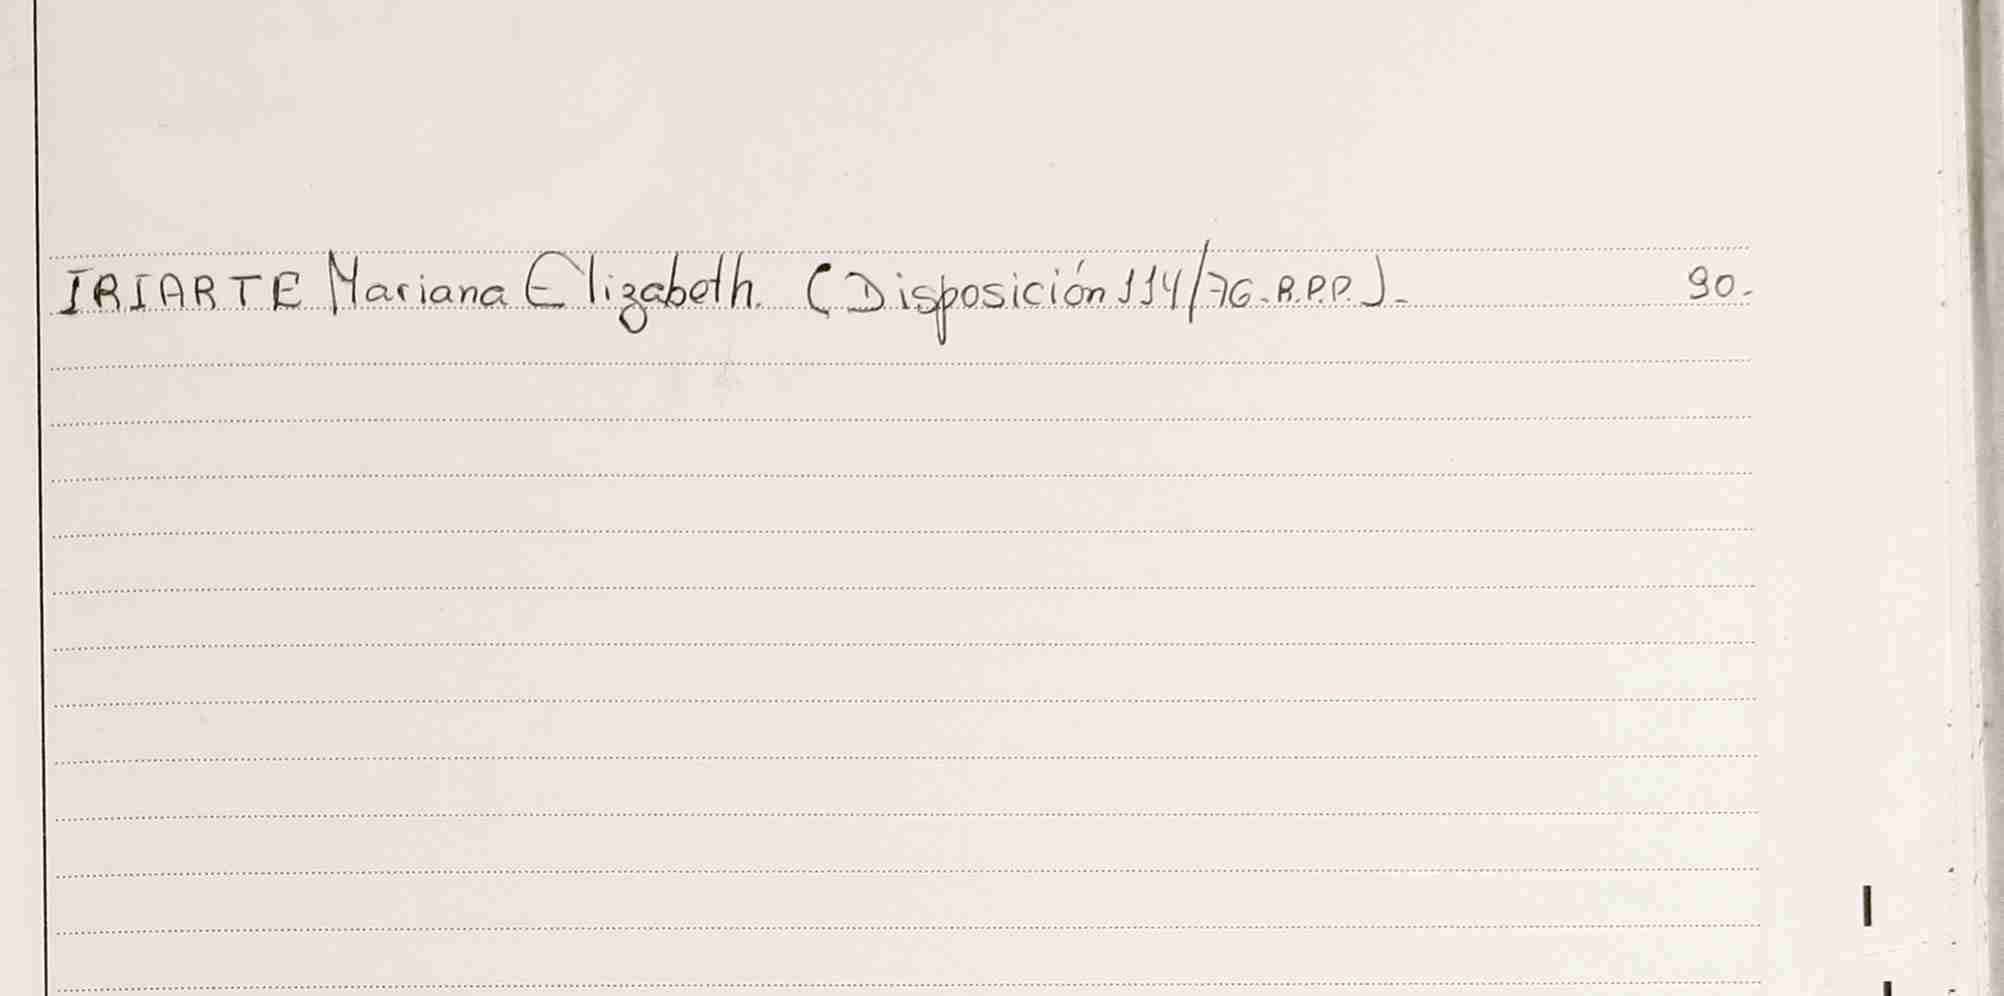 IRIARTE Mariana Elizabeth. (Disposición 114/76-R.P.P.).- 90.-